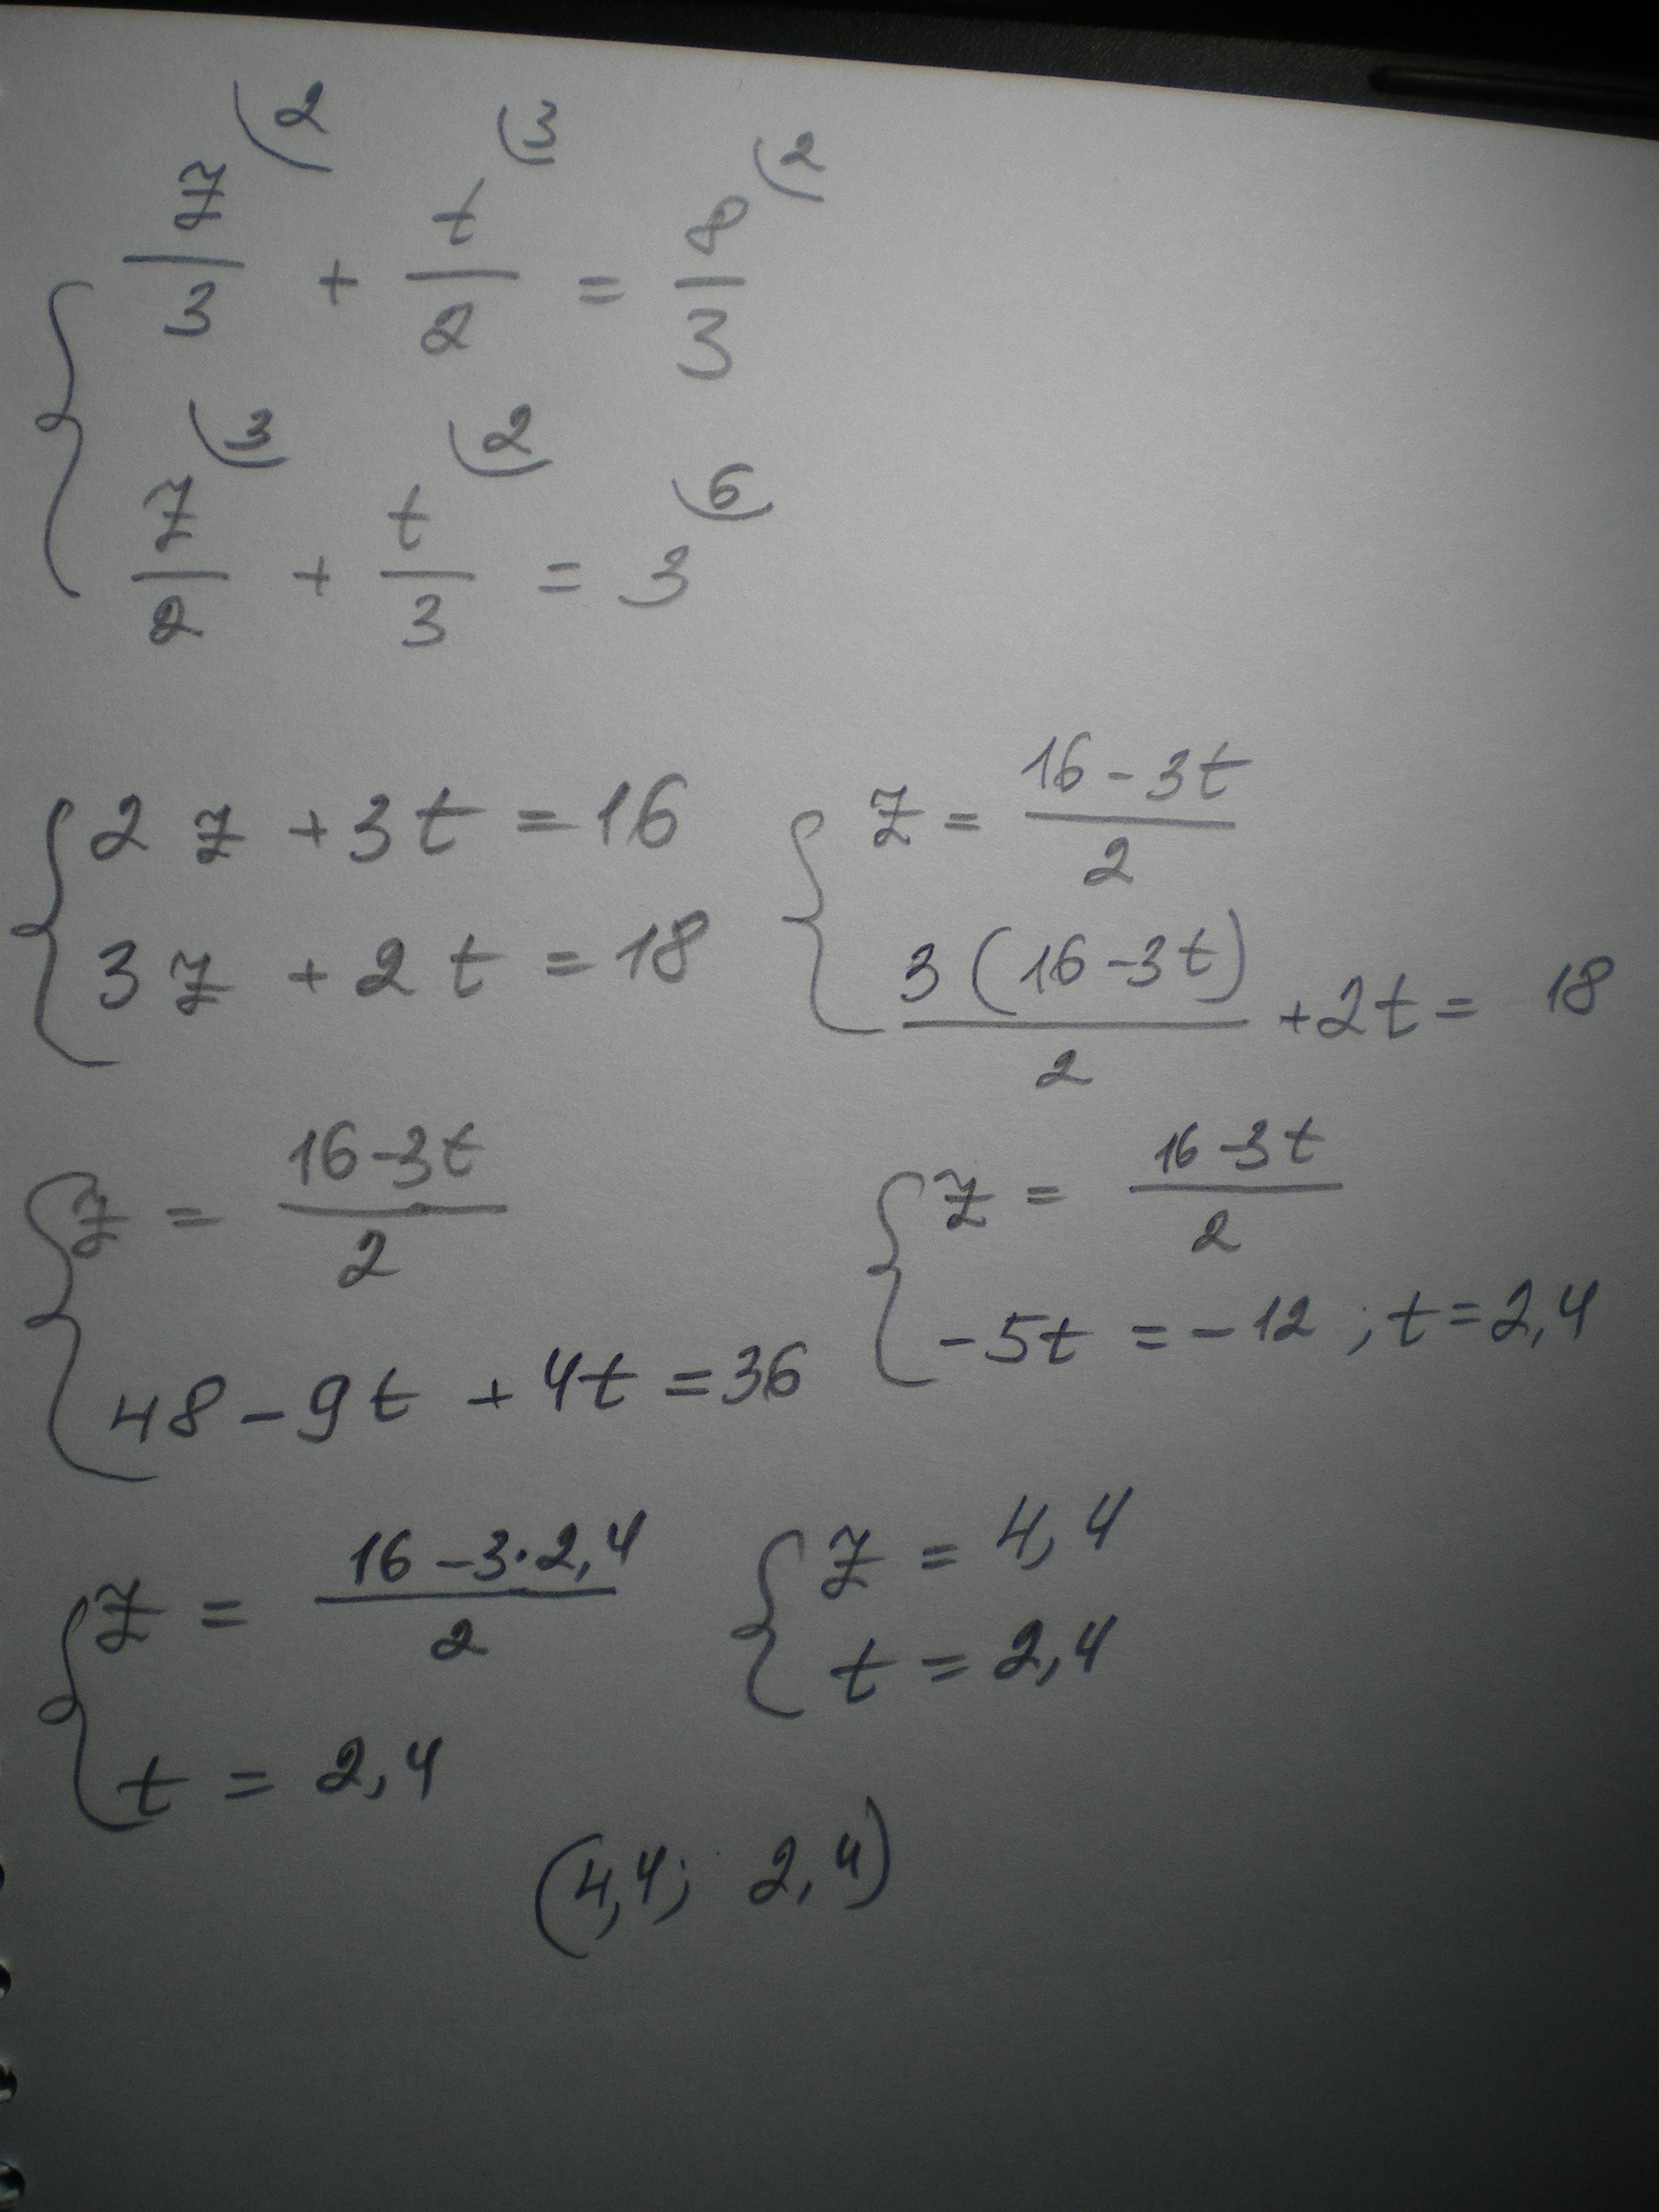 z/3 (2 + t/2 (3 = 8/3 (2
z/2 (3 + t/3 (2 = 3 (6
2z + 3t = 16
3z + 2t = 18
z = (16 - 3t)/2
3(16 - 3t)/2 + 2t = 18
z = (16 - 3t)/2
48 - 9t + 4t = 36
z = (16 - 3t)/2
-5t = -12 ; t = 2,4
z = (16 - 3·2,4)/2
t = 2,4
z = 4,4
t = 2,4
(4,4; 2,4)